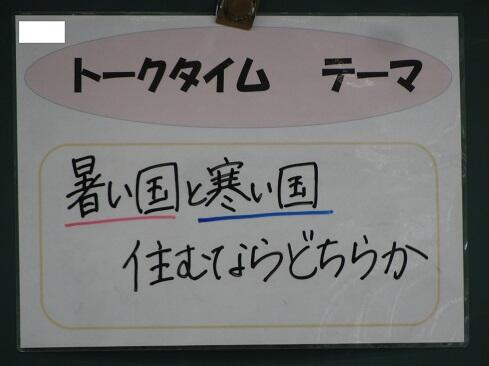 トークタイム　テーマ
暑い国と寒い国
住むならどちらか